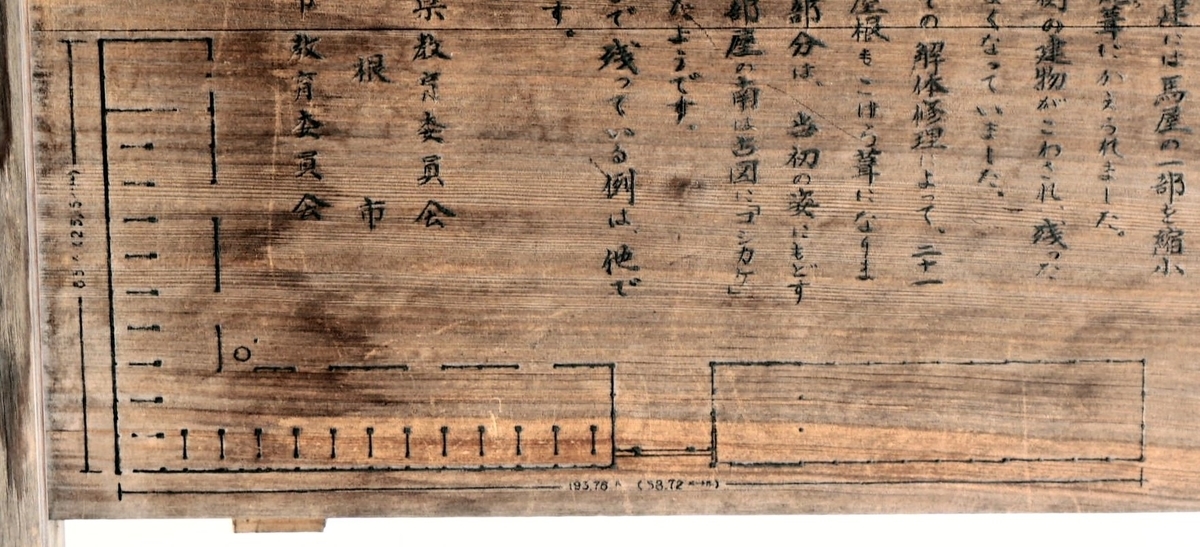 建には馬屋の一部を縮小
葺にかえられました。
側の建物がこわされ、残った
くなっていました。
ての解体修理によって、二十一
屋根もこけら葺になりま
部分は、当初の姿にもどす
部屋の南は古図に「コシカケ」
なようです。
で残っている例は、他で
す。
県教育委員会
根市
市教育委員会
193.76尺 (58.72米)